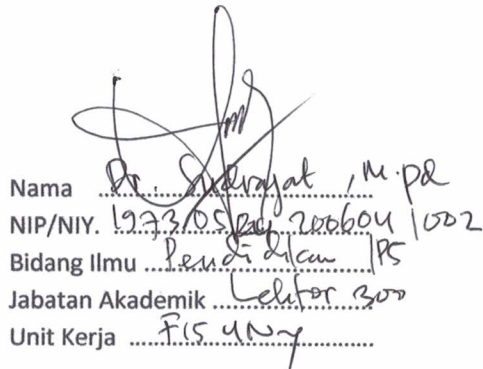 Nama Dr. Sudrajat, M.pd
NIP/NIY. 19730524 200604 1002
Bidang Ilmu Pendidikan IPS
Jabatan Akademik Lektor 300
Unit Kerja FIS UNY